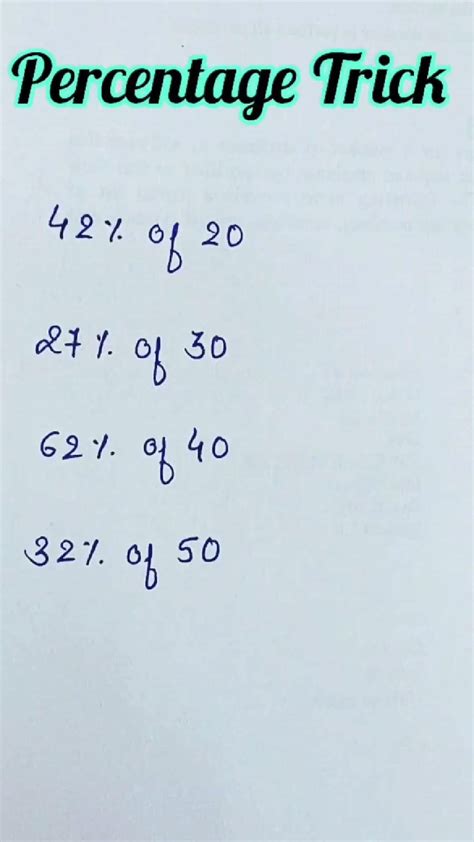 Percentage Trick
42% of 20
27% of 30
62% of 40
32% of 50